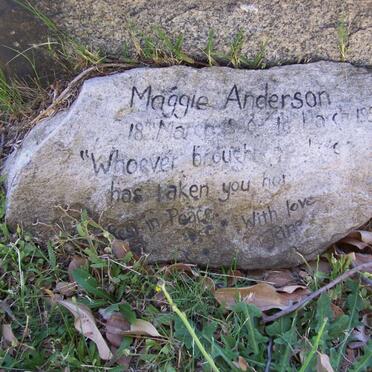 Maggie Anderson
18th March 18th March
"Whoever brought
has taken you
Rest in Peace With love